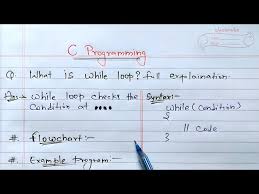 C Programming
Q. What is while loop? full explaination.
Ans:- while loop checks the
condition at ••••
Syntax:-
while(condition)
{
// code
}
# Flowchart:-
# Example Program:-